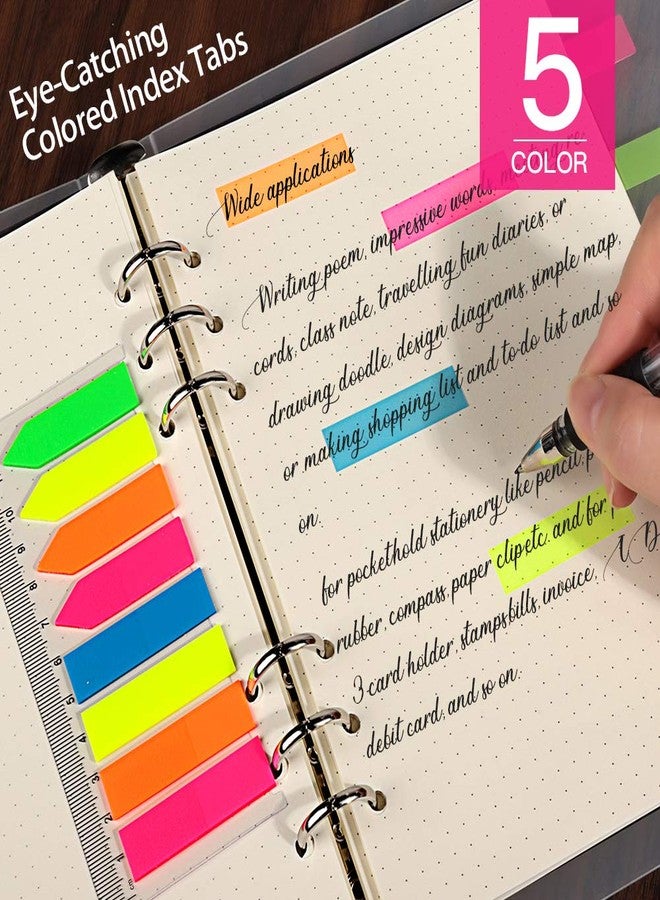 Eye-Catching
Colored Index Tabs
5
COLOR
Wide applications
Writing poem, impressive words, meeting re
cords, class note, travelling fun diaries, or
drawing doodle, design diagrams, simple map,
or making shopping list and to-do list and so
on.
for pockethold stationery like pencil,
rubber, compass, paper clip etc. and for
3-card holder, stamps bills, invoice,
debit card, and so on.
10
9
8
7
6
5
3
1
cm